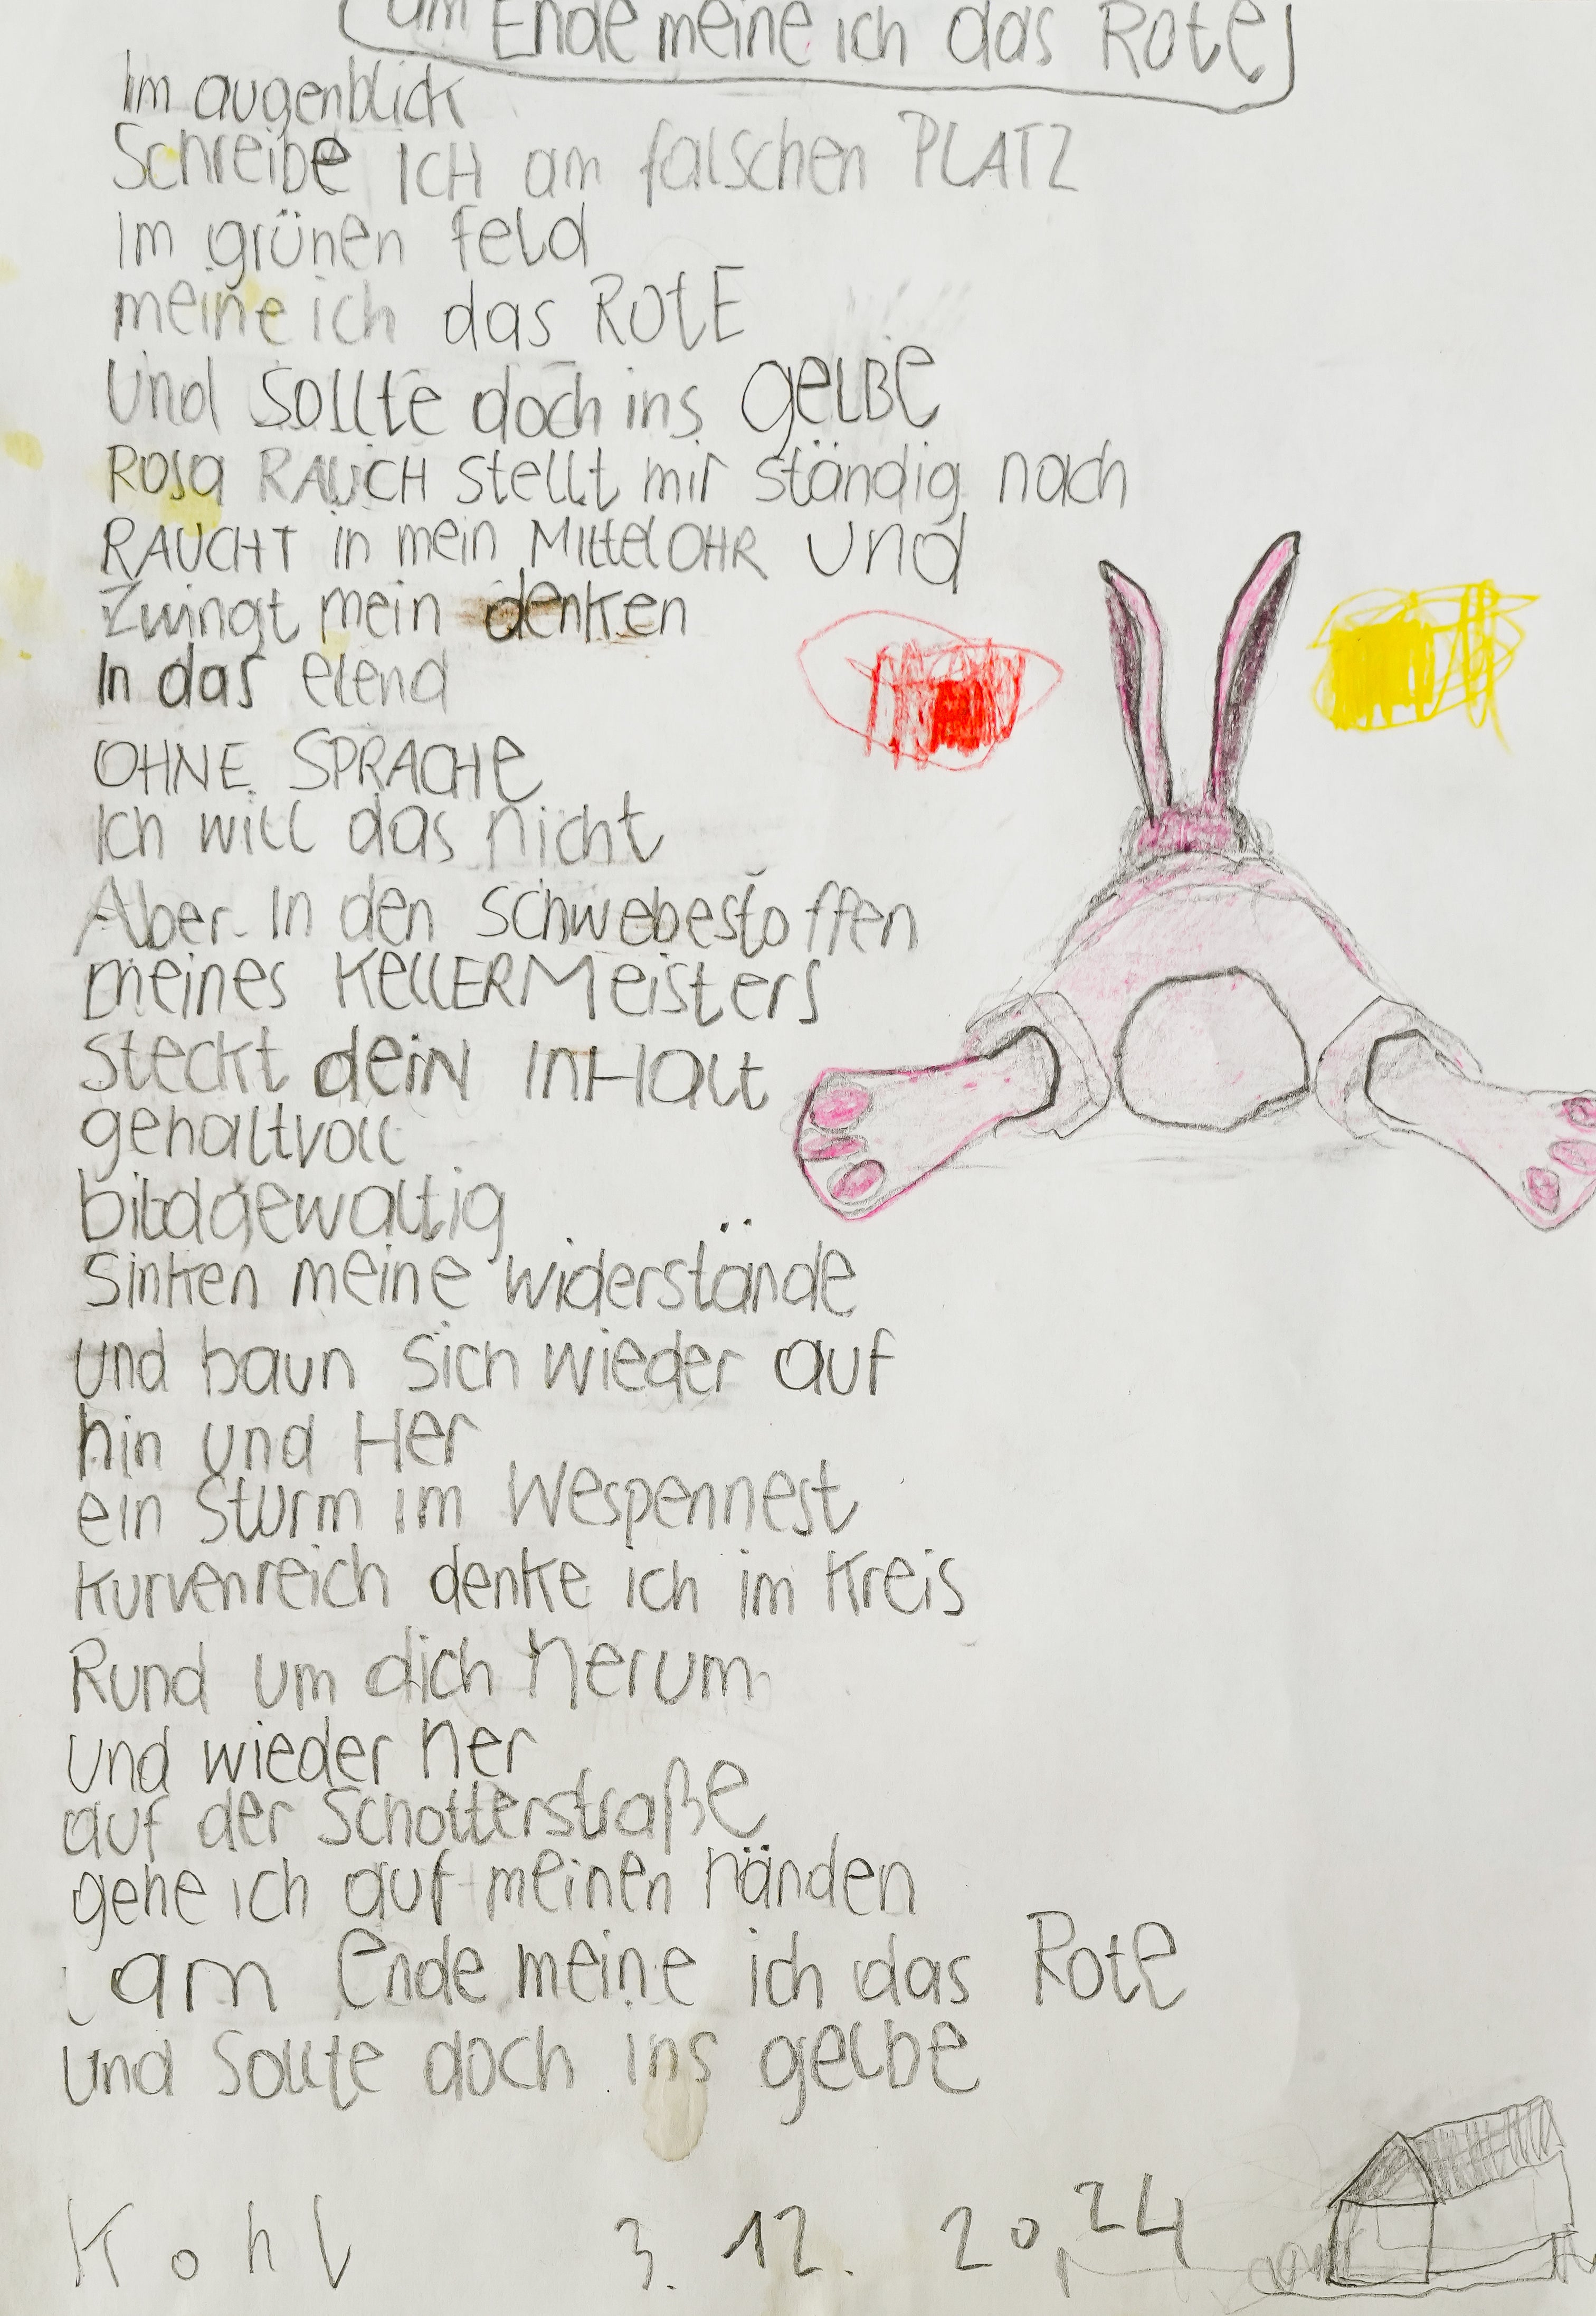 am Ende meine ich das Rote
Im augenblick
Schreibe ICH am falschen PLATZ
Im grünen feld
meine ich das ROtE
Und Sollte doch ins gelBe
Rosa RAUCH Stellt mir ständig nach
RAUCHT in mein MittelOHR und
Zwingt mein denken
In das elend
OHNE SPRACHe
Ich will das nicht
Aber In den Schwebestoffen
meines KellERMeisters
Steckt deiN InHalt
gehaltvoll
bildgewaltig
Sinken meine widerstände
und baun Sich wieder auf
hin und Her
ein Sturm im Wespennest
kurvenreich denke ich im Kreis
Rund um dich herum
und wieder her
auf der Schotterstraße
gehe ich auf meinen händen
am Ende meine ich das Rote
und Sollte doch ins gelbe
Kohl 3. 12. 20,24